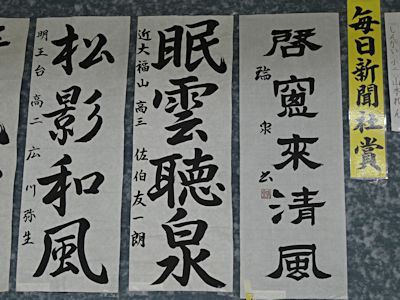 毎日新聞社賞
啓窓来清風
瑞泉書
眠雲聴泉
近大福山 高三 佐伯友一朗
松影和風
明王台 高二 広川弥生